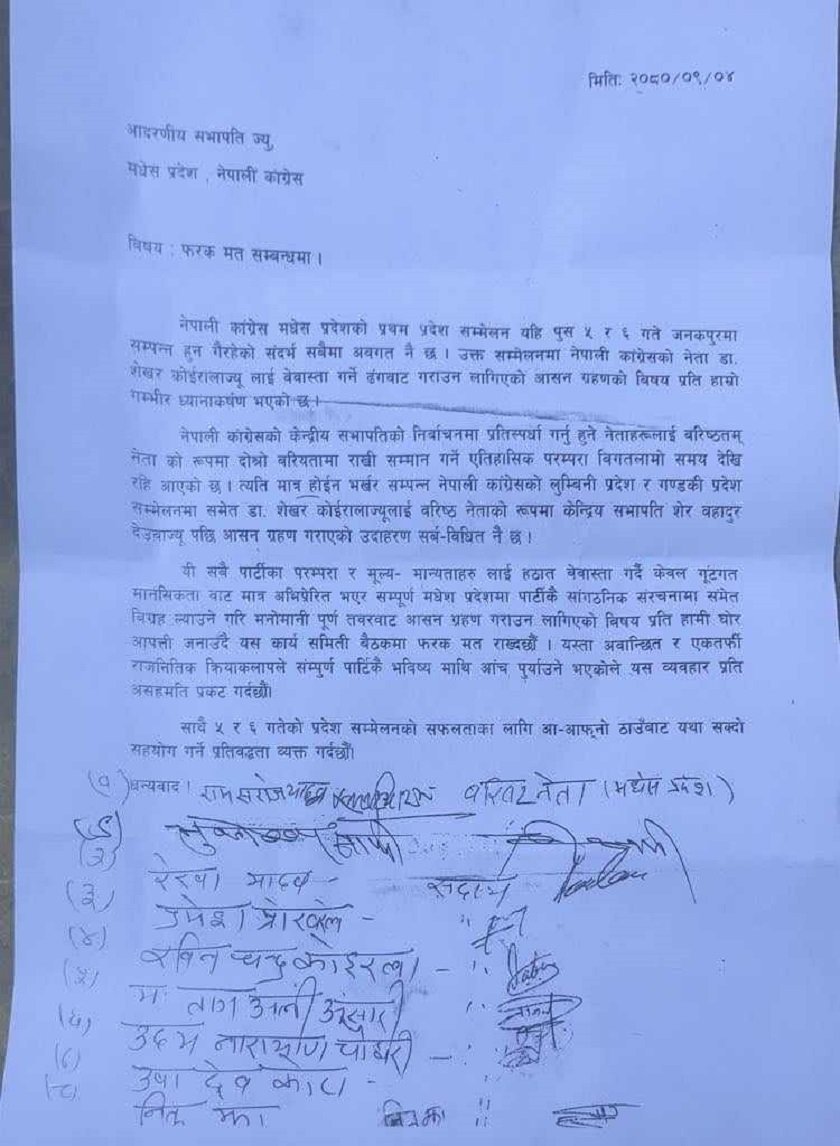 मितिः २०८०/०९/०४
आदरणीय सभापति ज्यु,
मधेस प्रदेश , नेपाली कांग्रेस
विषय : फरक मत सम्बन्धमा ।
नेपाली कांग्रेस मधेस प्रदेशको प्रथम प्रदेश सम्मेलन यहि पुस ५ र ६ गते जनकपुरमा
सम्पन्न हुन गैरहेको संदर्भ सबैमा अवगत नै छ । उक्त सम्मेलनमा नेपाली कांग्रेसको नेता डा.
शेखर कोईरालाज्यू लाई वेवास्ता गर्ने ढंगवाट गराउन लागिएको आसन ग्रहणको विषय प्रति हाम्रो
गम्भीर ध्यानाकर्षण भएको छ ।
नेपाली कांग्रेसको केन्द्रीय सभापतिको निर्वाचनमा प्रतिस्पर्धा गर्नु हुने नेताहरूलाई वरिष्ठतम्
नेता को रूपमा दोश्रो वरियतामा राखी सम्मान गर्ने एतिहासिक परम्परा विगतलामो समय देखि
रहि आएको छ । त्यति मात्र होईन भर्खर सम्पन्न नेपाली कांग्रेसको लुम्बिनी प्रदेश र गण्डकी प्रदेश
सम्मेलनमा समेत डा. शेखर कोईरालाज्यूलाई वरिष्ठ नेताको रूपमा केन्द्रिय सभापति शेर वहादुर
देउवाज्यू पछि आसन ग्रहण गराएको उदाहरण सर्ब-विधित नै छ ।
यी सबै पार्टीका परम्परा र मूल्य- मान्यताहरु लाई हठात वेवास्ता गर्दै केवल गूटगत
मानसिकता वाट मात्र अभिप्रेरित भएर सम्पूर्ण मधेश प्रदेशमा पार्टीकै सांगठनिक संरचनामा समेत
विग्रह ल्याउने गरि मनोमानी पूर्ण तवरवाट आसन ग्रहण गराउन लागिएको विषय प्रति हामी घोर
आपत्ती जनाउँदै यस कार्य समिती बैठकमा फरक मत राख्दछौं । यस्ता अवान्छित र एकतर्फी
राजनितिक क्रियाकलापले संम्पुर्ण पार्टिकै भविष्य माथि आंच पुर्याउने भएकोले यस व्यवहार प्रति
असहमति प्रकट गर्दछौं।
साथै ५ र ६ गतेको प्रदेश सम्मेलनको सफलताका लागि आ-आफ्नो ठाउँवाट यथा सक्दो
सहयोग गर्ने प्रतिवद्धता व्यक्त गर्दछौं।
धन्यवाद । रामसरोज यादव वरिष्ट नेता (मधेस प्रदेश)
(२)
रेखा यादव - सदस्य
(३)
उमेश -
(४)
रबिन चन्द्र कोइराला - "
(५)
अली अंसारी "
(६)
उदय नारायण चौधरी - "
उषा देव -
झा "